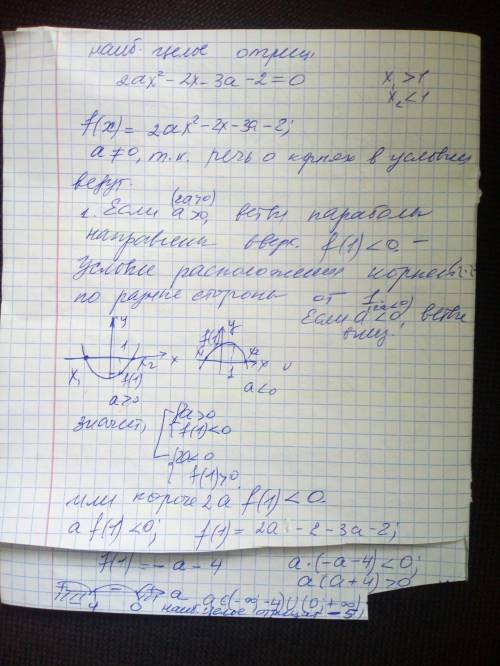 наиб. целое отриц.
2ax² - 2x - 3a - 2 = 0
x₁ > 1
x₂ < 1
f(x) = 2ax² - 2x - 3a - 2;
a ≠ 0, т.к. речь о корнях в условии
ведут.
1. Если a > 0, (2a>0) ветви параболы
направлены вверх. f(1) < 0. -
условие расположения корней
по разные стороны от 1
Если a < 0 (2a<0), ветви
вниз
y
1
x₁ x₂ x
f(1)
a > 0
f(1) y
x₁ x₂ x
1
a < 0
значит,
2a > 0
f(1) < 0
2a < 0
f(1) > 0
или короче 2a f(1) < 0.
a f(1) < 0; f(1) = 2a - 2 - 3a - 2;
f(1) = -a - 4
a·(-a-4) < 0;
a(a+4) > 0
+ - +
-4 0 a
a ∈ (-∞; -4) ∪ (0; +∞)
наиб. целое отрицат - 5